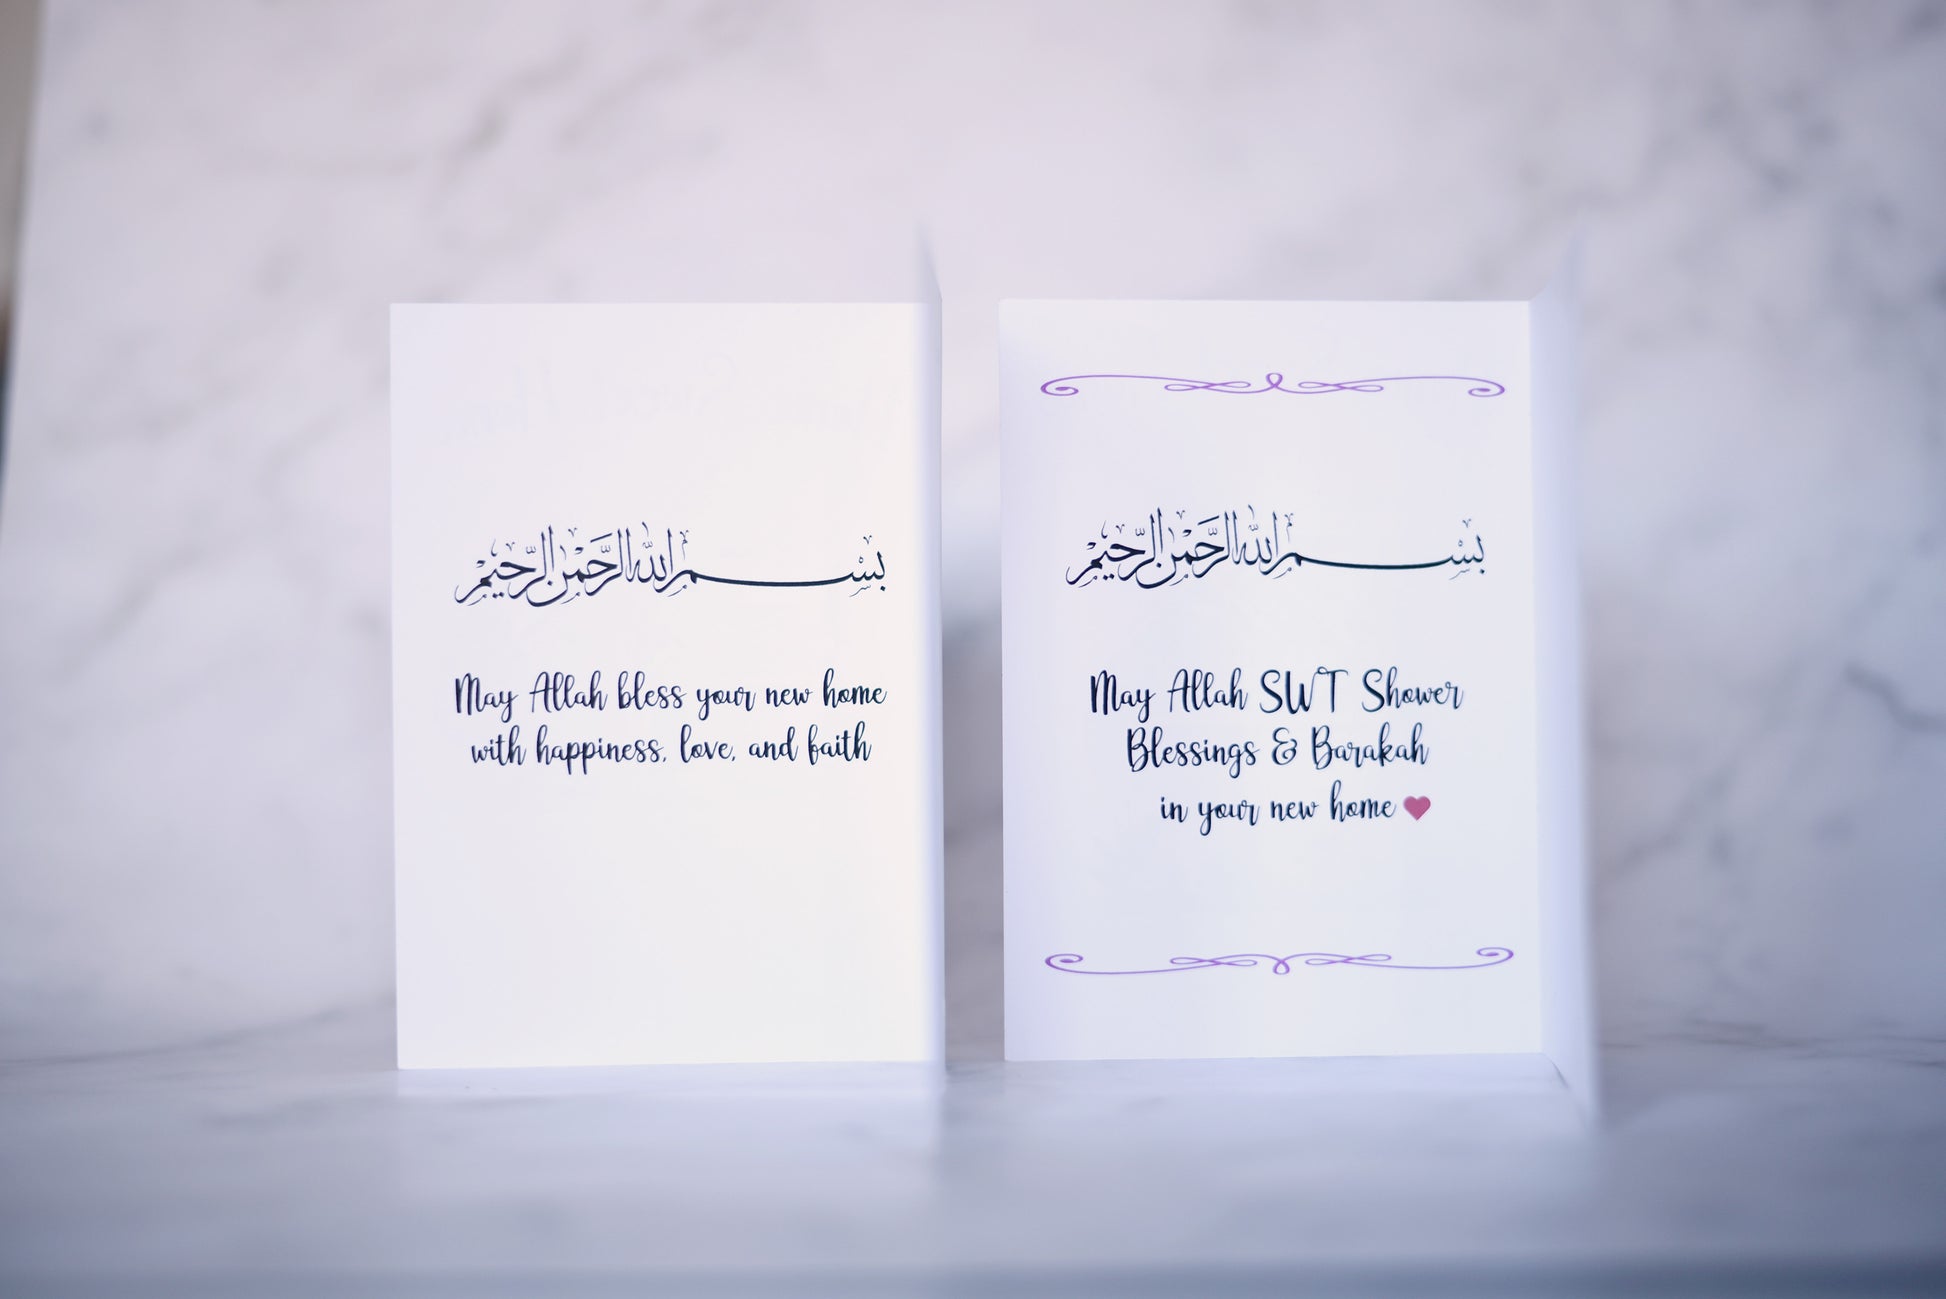 بسم الله الرحمن الرحيم
May Allah bless your new home
with happiness, love, and faith
بسم الله الرحمن الرحيم
May Allah SWT Shower
Blessings & Barakah
in your new home ❤